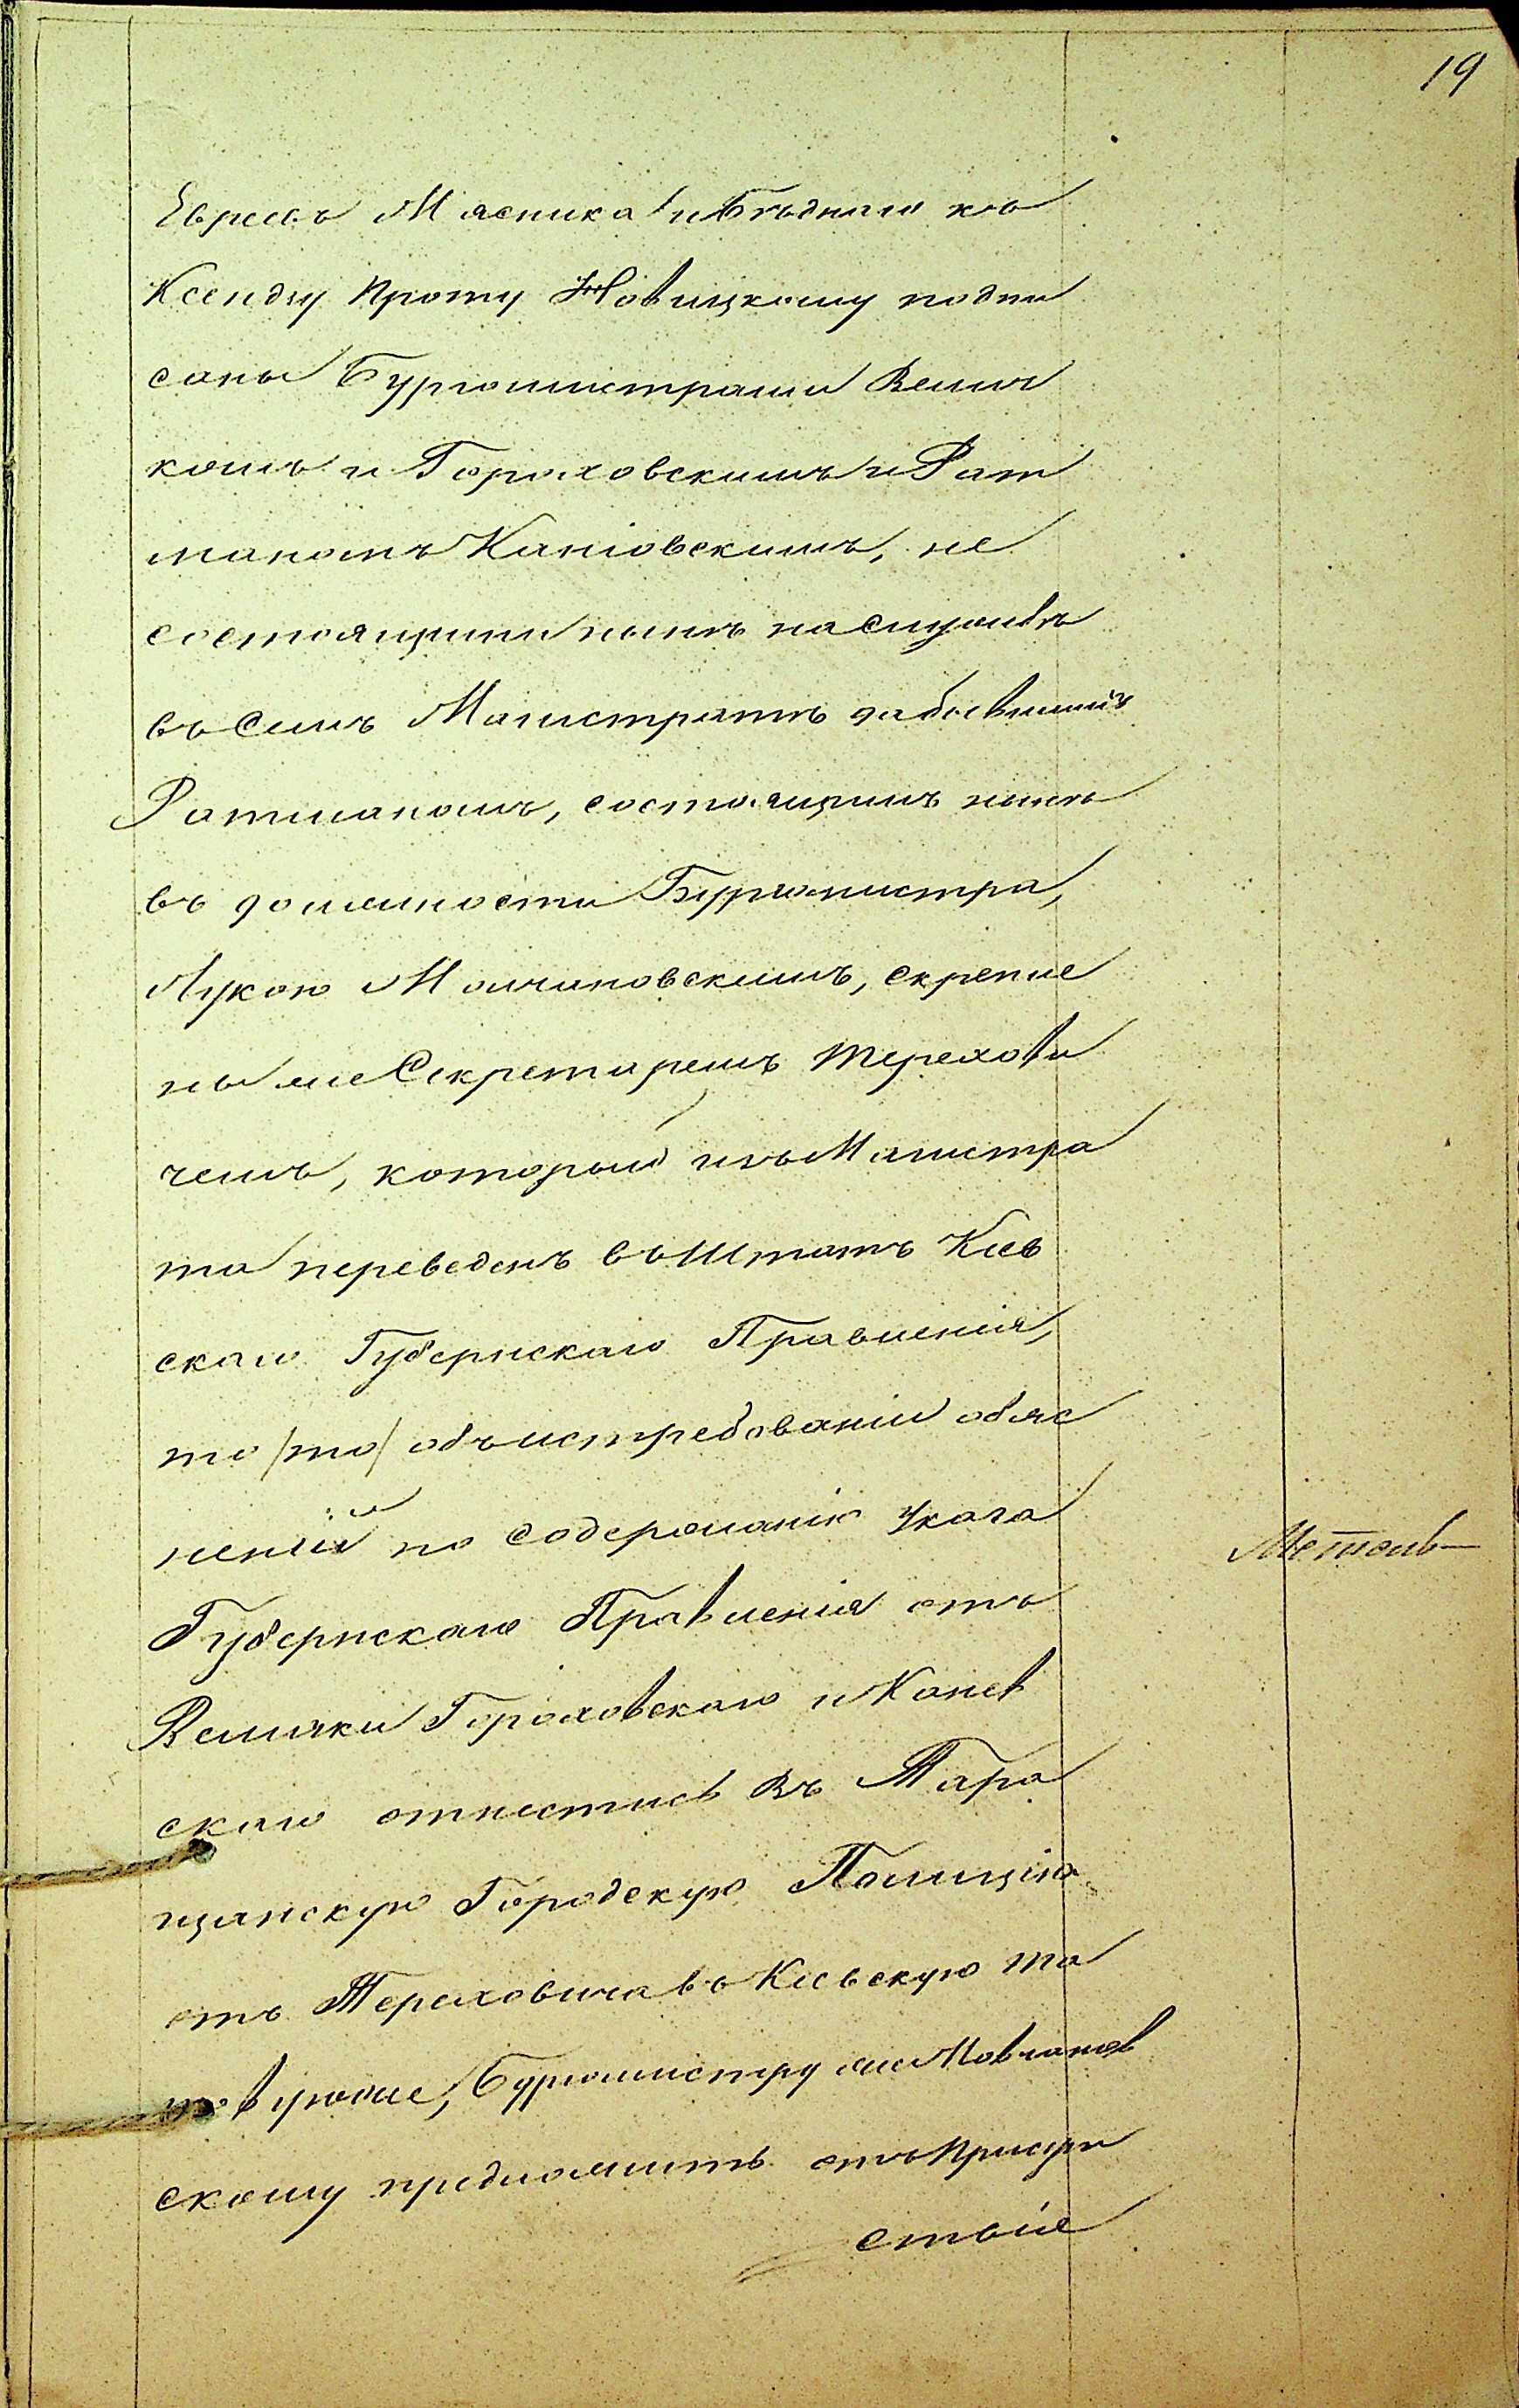 19
Евреевъ Мясника и Бѣднаго къ
Ксендзу Проту Новицкому подпи
саны Бургомистрами Велич
комъ и Гороховскимъ и Рат
маномъ Каніовскимъ, не
состоящими нынѣ на службѣ
въ семъ Магистратѣ да бывшимъ
Ратманомъ, состоящимъ нынѣ
въ должности Бургомистра,
Лукою Молчановскимъ, скрепле
ны же Секретаремъ Терехови
чемъ, который изъ Магистра
та переведенъ въ Штатъ Кіев
скаго Губернскаго Правленія,
то /то/ объ истребованіи обяс
неній по содержанію Указа
Губернскаго Правленія отъ
Велички Гороховскаго и Канев
скаго отнестись въ Тара
щанскую Городскую Полицію
отъ Тереховича въ Кіевскую та
ковуюже, Бургомистру же Мовчанов
скому предложить отъ Присут
ствія